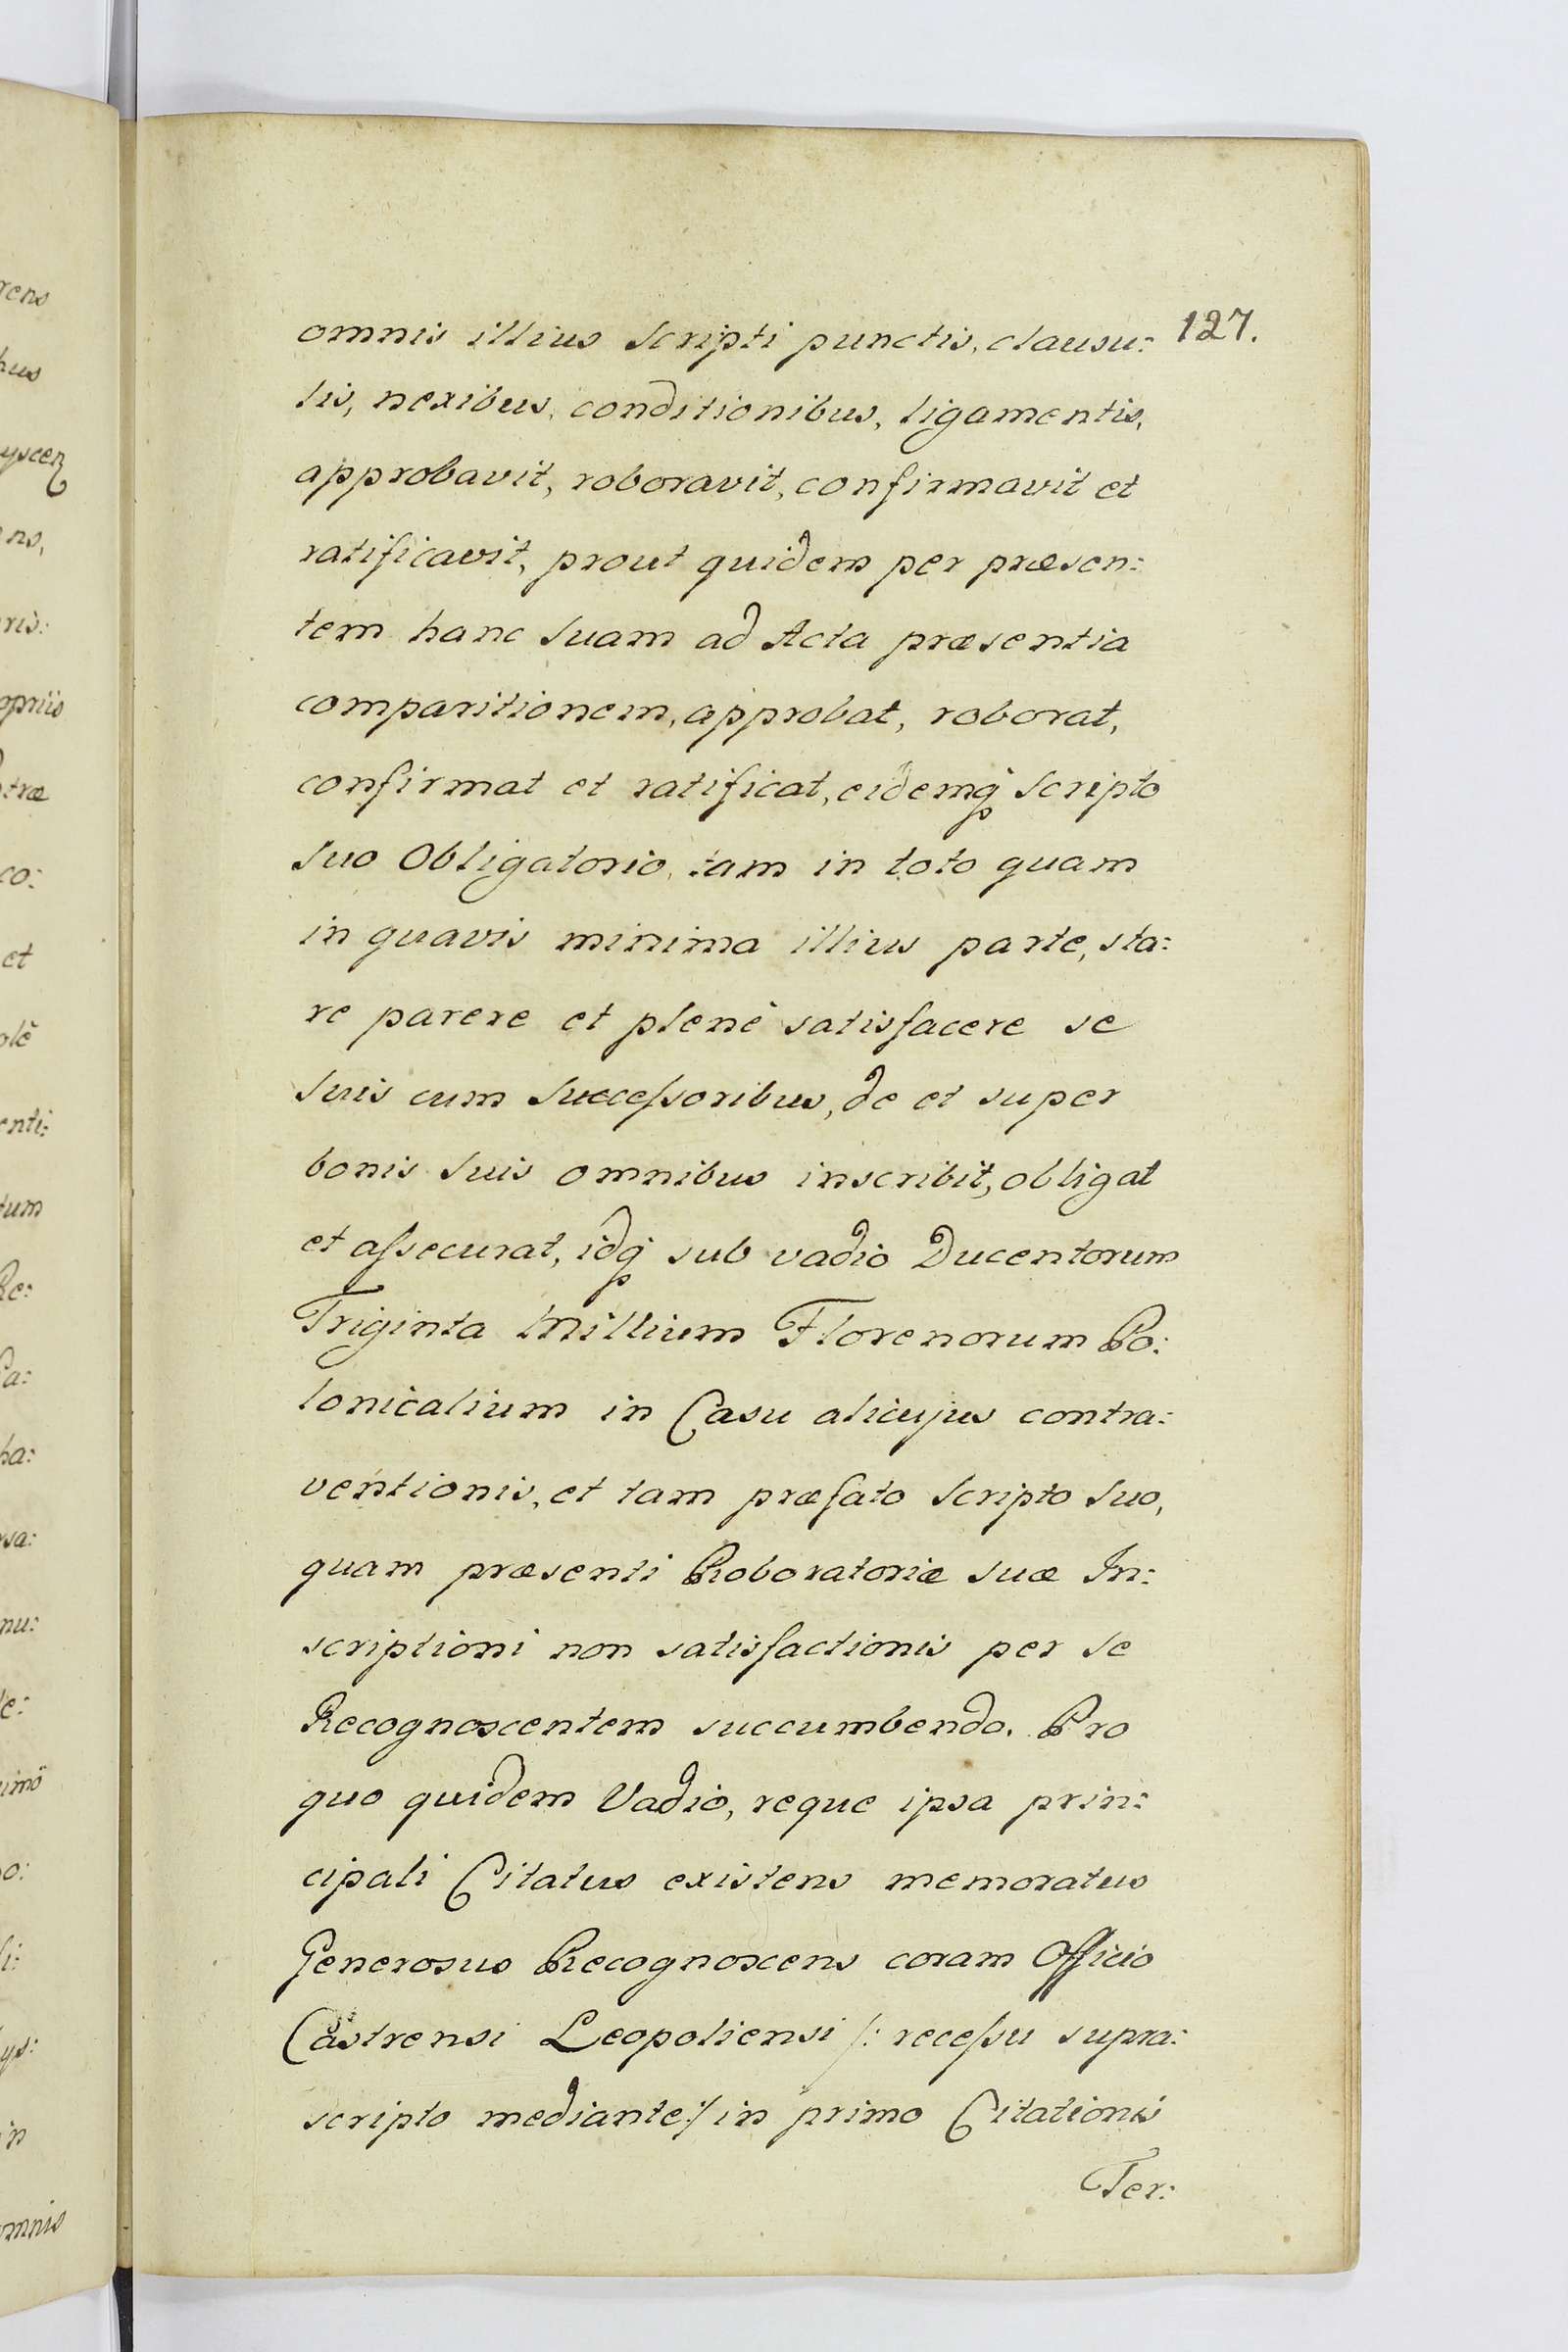 127.
omnis illius Scripti punctis, clausu:
lis, nexibus, conditionibus, ligamentis,
approbavit, roboravit, confirmavit et
ratificavit, prout quidem per præsen:
tem hanc Suam ad Acta præsentia
comparitionem, approbat, roborat,
confirmat et ratificat, eidemq́ Scripto
Suo Obligatorio, tam in toto quam
in quavis minima illius parte, sta:
re parere et plenè satisfacere se
Suis cum Succeſsoribus, de et super
bonis Suis omnibus inscribit, obligat
et aſsecurat, idq́ sub vadio Ducentorum
Triginta Millium Florenorum Po:
lonicalium in Casu alicujus contra:
ventionis, et tam præfato Scripto Suo,
quam præsenti Roboratoriæ suæ In:
scriptioni non satisfactionis per se
Recognoscentem succumbendo. Pro
quo quidem Vadio, reque ipsa prin:
cipali Citatus existens memoratus
Generosus Recognoscens coram Officio
Castrensi Leopoliensi /: receſsu supra:
scripto mediante :/ in primo Citationis
Ter:
rens
yscen
ns,
ris:
opriis
træ
co:
et
olè
enti:
tum
Re:
Pa:
ha:
sa:
nu:
le:
imö
o:
ys:
in
omnis